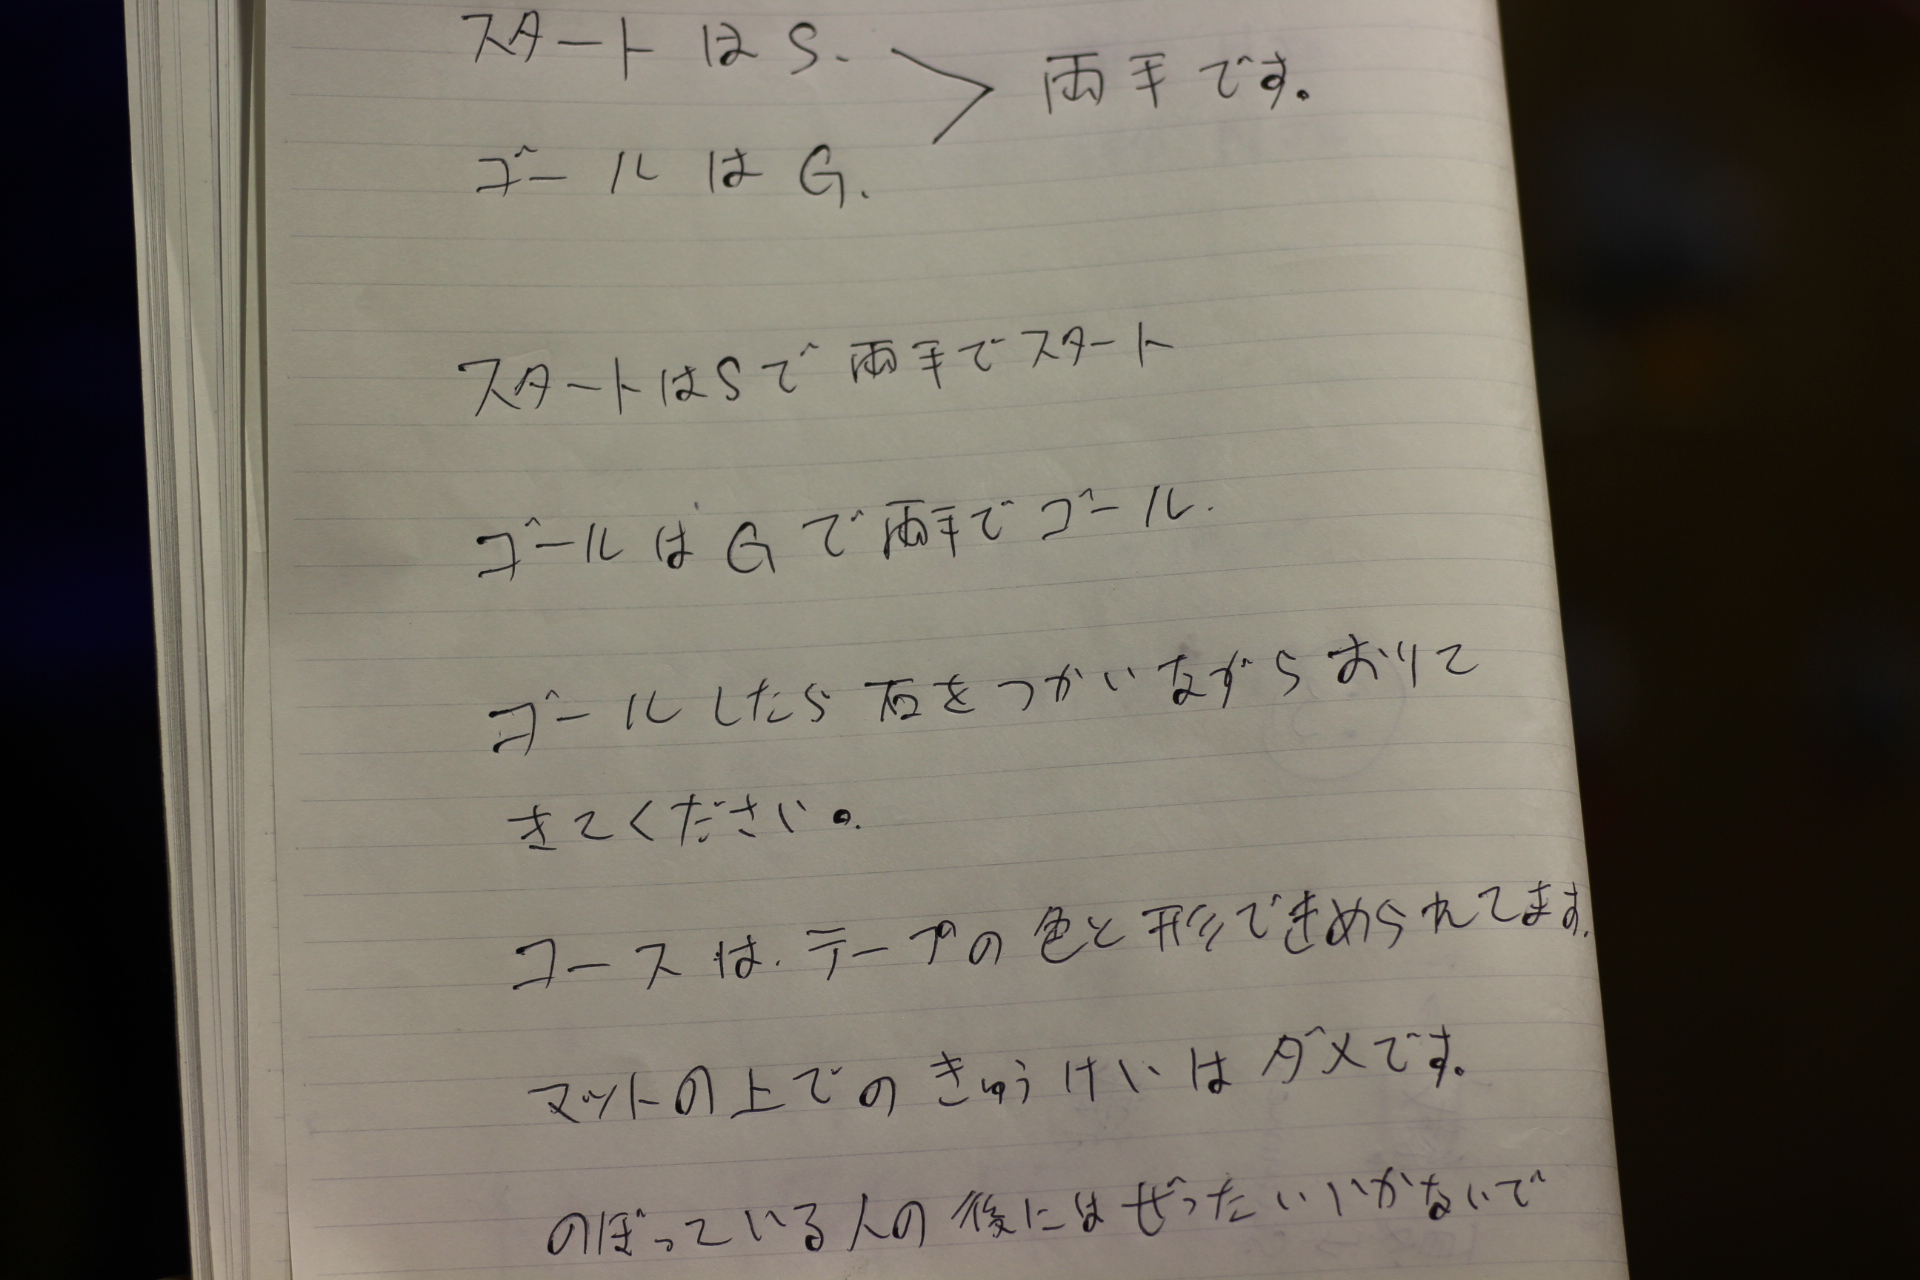 スタートはS.
ゴールはG.
両手です。
スタートはSで両手でスタート
ゴールはGで両手でゴール.
ゴールしたら石をつかいながらおりて
きてください。
コースは.テープの色と形できめられてます.
マットの上でのきゅうけいはダメです。
のぼっている人の後にはぜったいいかないで